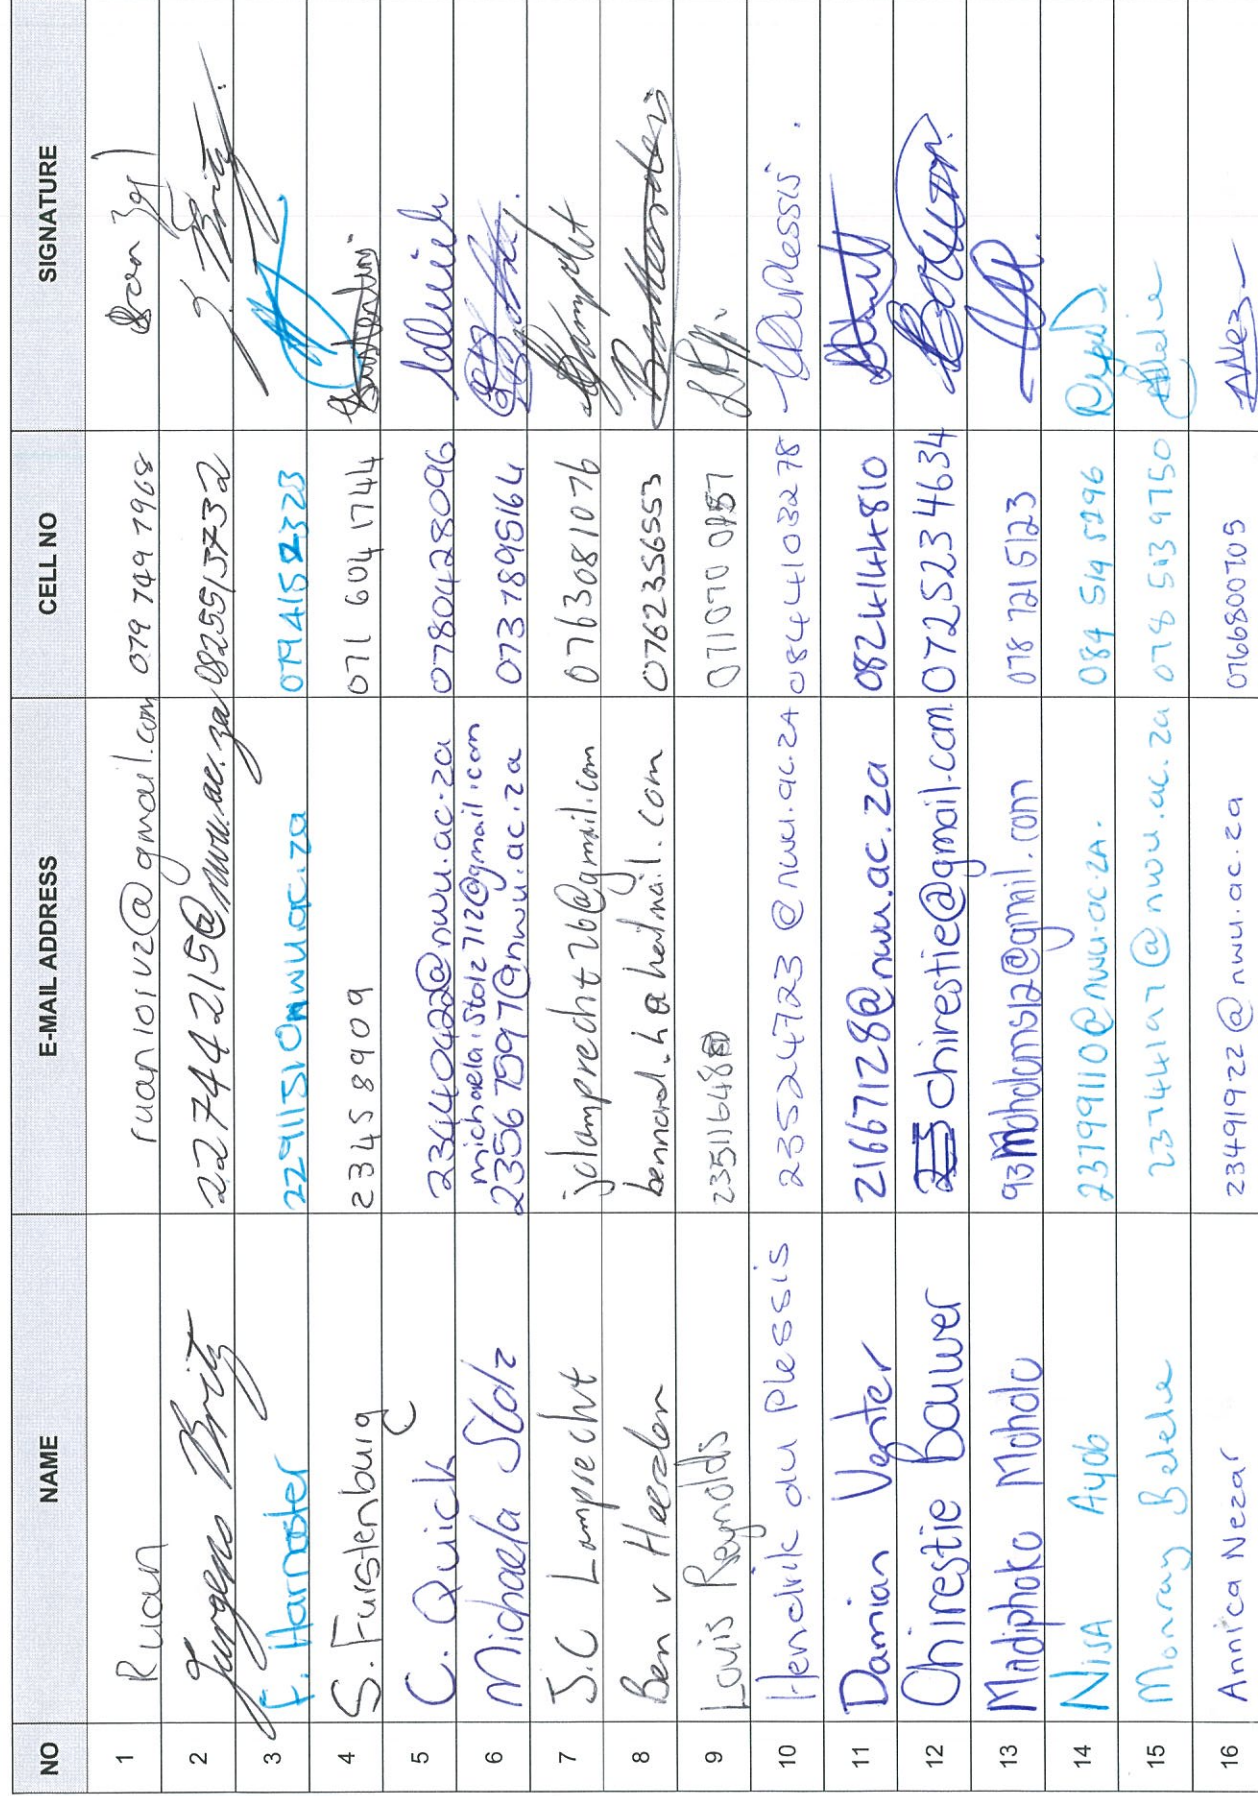 NO NAME E-MAIL ADDRESS CELL NO SIGNATURE
1 Ruan ruan101vz@gmail.com 079 749 7968
2 Jurgens Britz 22744215@nwu.ac.za 0825513732 J. Britz
3 F. Harmster 22911510nwu.ac.za
4 S. Furstenburg 23458909 071 604 1744
5 C. Quick 23640422@nwu.ac.za 0780428096
6 Michaela Stolz michaela.stolz712@gmail.com
23567597@nwu.ac.za 0737895164
7 J.C Lamprecht jclamprecht26@gmail.com 0763081076
8 Ben v Heerden bennard.h@hotmail.com 0762356553
9 Louis Reynolds 071070
10 Hendrik du Plessis 23524723@nwu.ac.ZA 0844103278 HDuPlessis.
11 Damian Venter 21667128@nwu.ac.za 0824144810
12 Chirestie Bauwer chirestie@gmail.com 0725234634
13 Madiphoko Moholo 93moholoms12@gmail.com 078 721 5123
14 NisA Ayob 23799110@nwu.ac.ZA. 084 519 5296
15 Monray Belelie 23744197@nwu.ac.za 078 513 9750
16 Annica Nezar 23491922@nwu.ac.za 0766800705